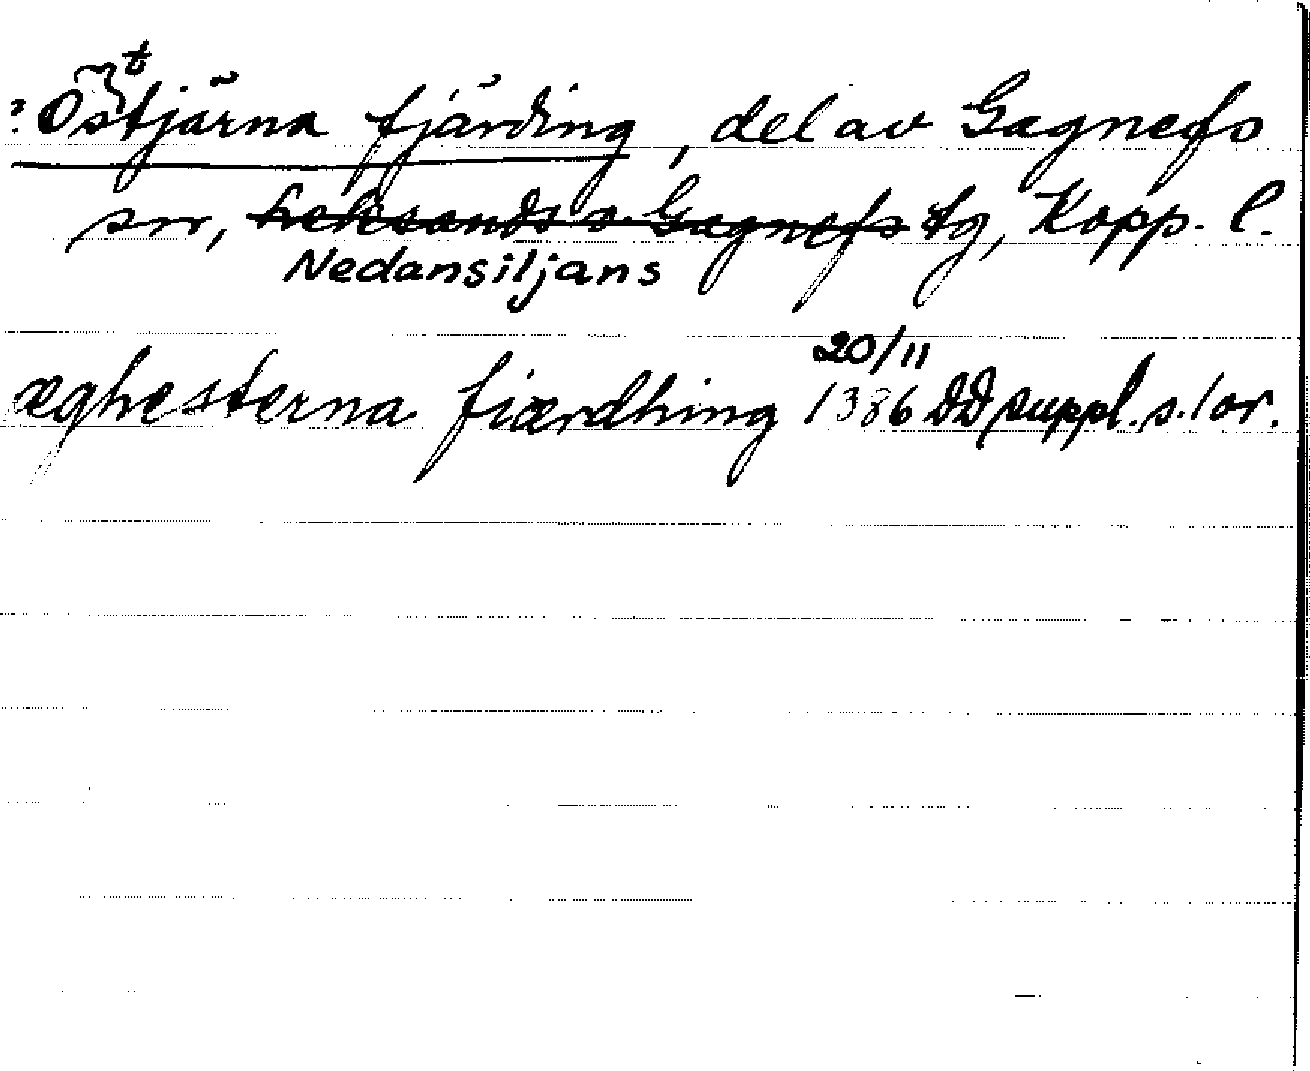 ? Östjärna fjärding, del av Gagnefs
sn, Leksands o. Gagnefs tg, Kopp. l.
Nedansiljans
æghesterna fiærdhing 20/11 1386 DD suppl. s. 1 or.